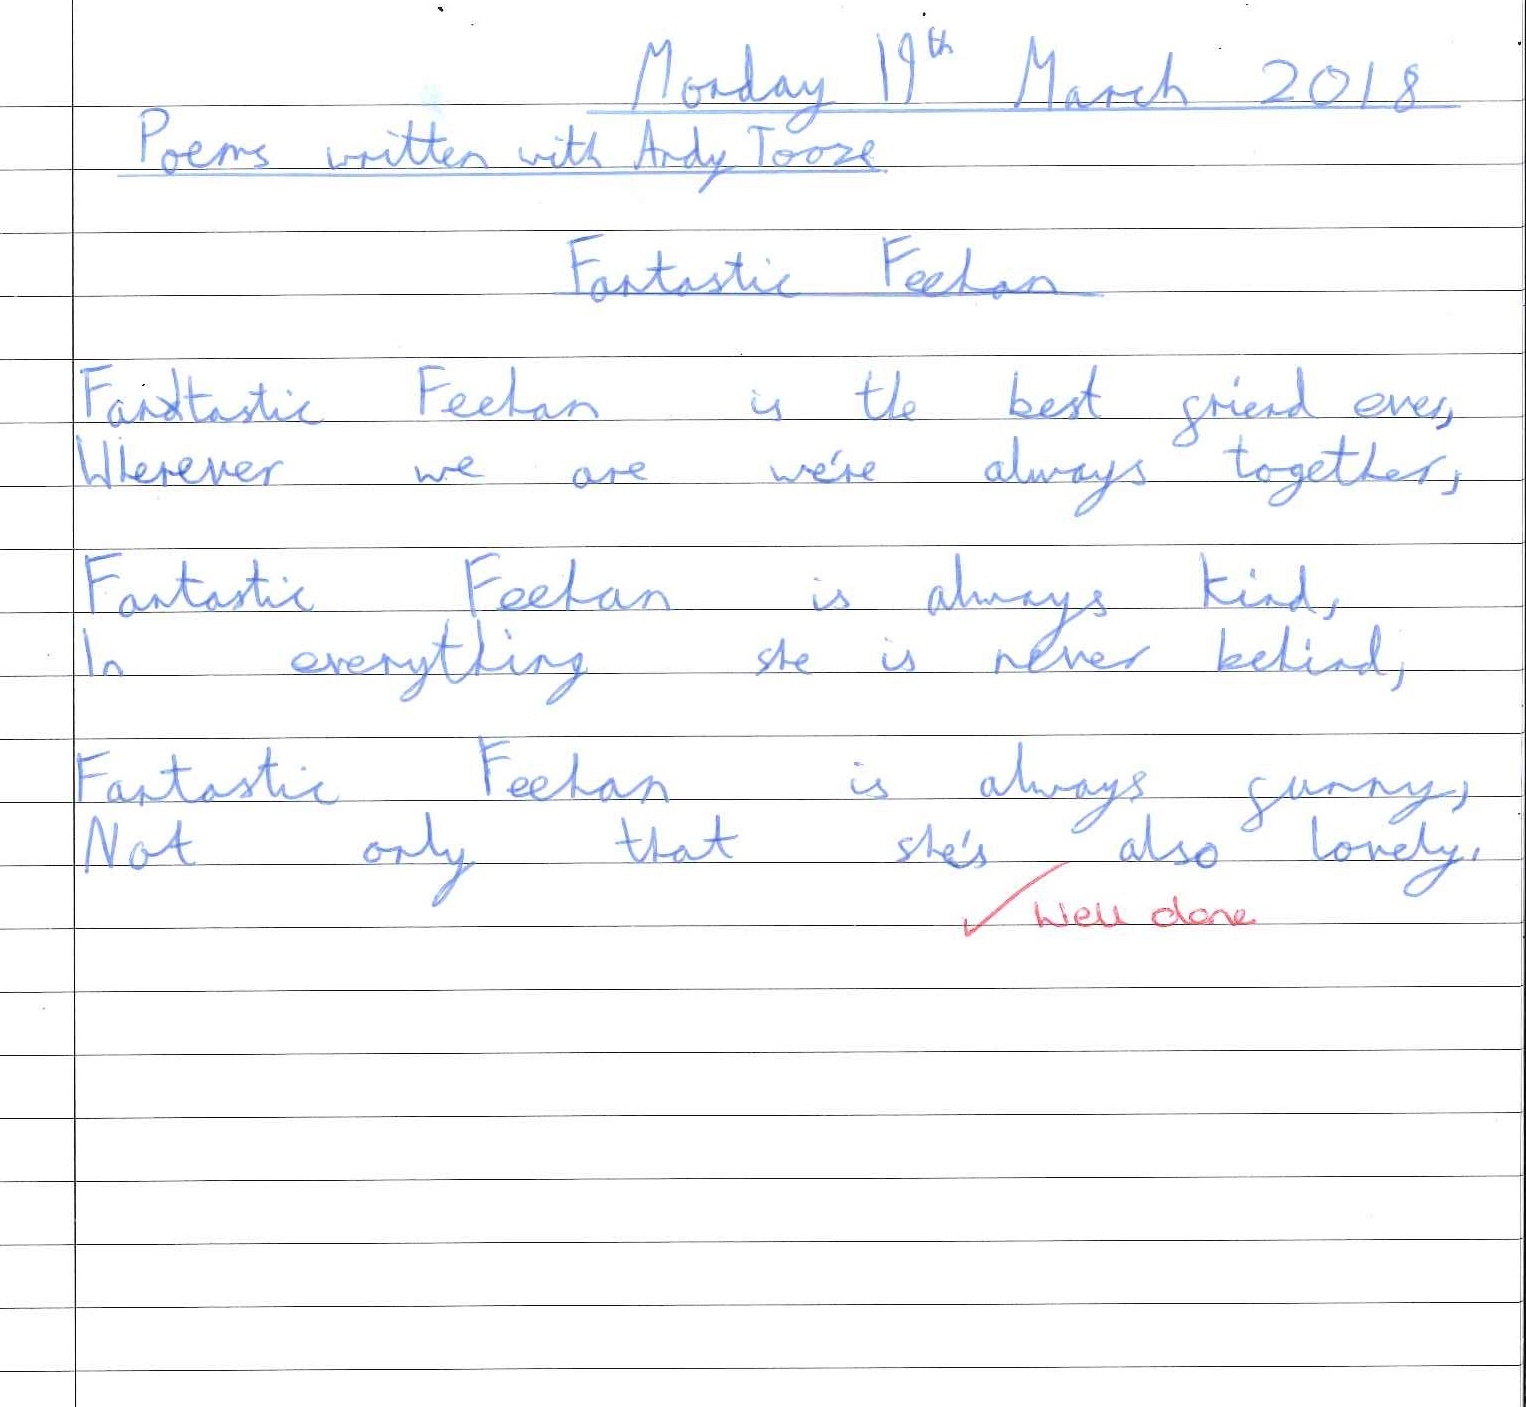 Monday 19th March 2018
Poems written with Andy Tooze
Fantastic Feehan
Fantastic Feehan is the best friend ever,
Wherever we are we're always together,
Fantastic Feehan is always kind,
In everything she is never behind,
Fantastic Feehan is always funny,
Not only that she's also lovely.
✓ Well done